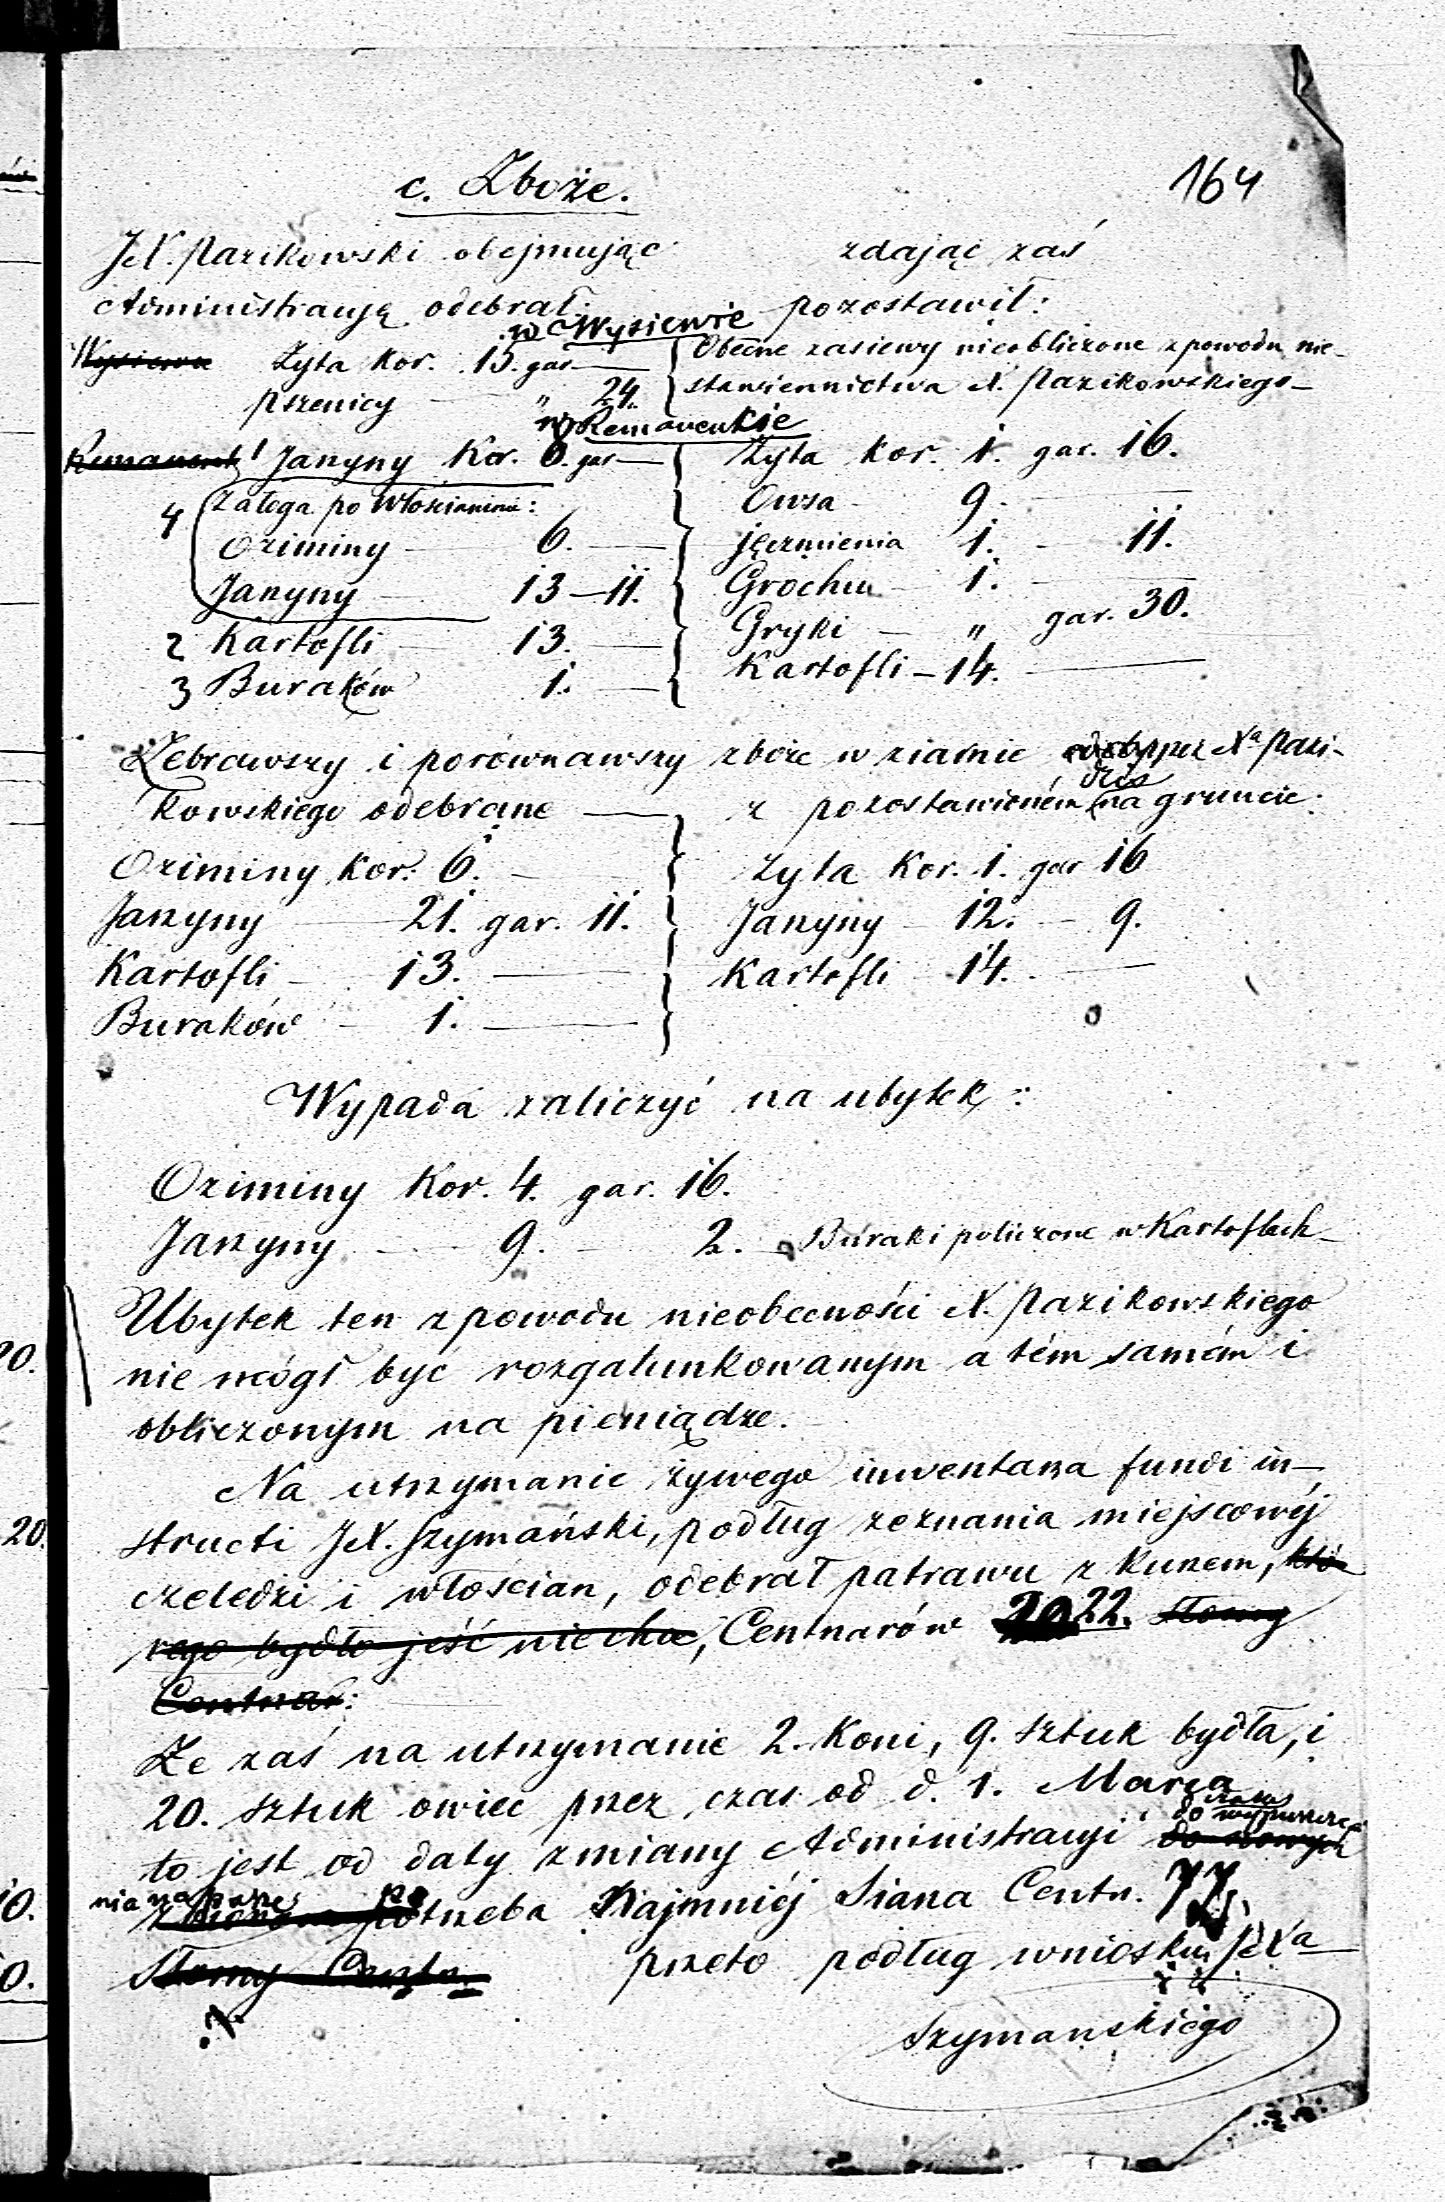 164
c. Zboże.
JX. Pazikowski obejmując zdając zaś
Administracyą odebrał: pozostawił:
w Wysiewie
Wysiewu Żyta kor. 15. gar — Obecne zasiewy nieobliczone z powodu nie-
Pszenicy — " 24. stawiennictwa X. Pazikowskiego —
w Remanencie
Remanent 1 Jarzyny Kor. 8. gar — Żyta kor. 1. gar. 16.
4 Załoga po Włościaninie: Owsa — 9. —
Oziminy — 6. — jęczmienia 1. — 11.
Jarzyny — 13 — 11. Grochu — 1. —
2 Kartofli — 13. — Gryki — " gar. 30.
3 Buraków 1. — Kartofli — 14. —
Zebrawszy i porównawszy zboże w ziarnie przez Xa Pazi-
kowskiego odebrane — z pozostawioném dziś na gruncie:
Oziminy kor. 6. — żyta Kor. 1. gar 16
Jarzyny — 21. gar. 11. Jarzyny — 12. — 9.
Kartofli — 13. — Kartofli 14. —
Buraków — 1. —
Wypada zaliczyć na ubytek:
Oziminy Kor. 4. gar. 16.
Jarzyny — 9. — 2. Buraki policzone w Kartoflach —
Ubytek ten z powodu nieobecności X. Pazikowskiego
nie mógł być rozgatunkowanym a tém samém i
obliczonym na pieniądze.
Na utrzymanie żywego inwentarza fundi in-
structi JX. Szymański, podług zeznania miejscowéj
czeledzi i włościan, odebrał patrawu z kurzem, któ-
rego bydło jeść niechce, Centnarów 20 22. słomy
Centnar:
Że zaś na utrzymanie 2. Koni, 9. sztuk bydła, i
20. sztuk owiec przez czas od d. 1. Marca
to jest od daty zmiany Administracyi do czasu wypuszcze- do nowych
nia na paszę po- potrzeba Najmniéj Siana Centn. 77.
Słomy Centn. przeto podług wniosku JXa
Szymańskiego